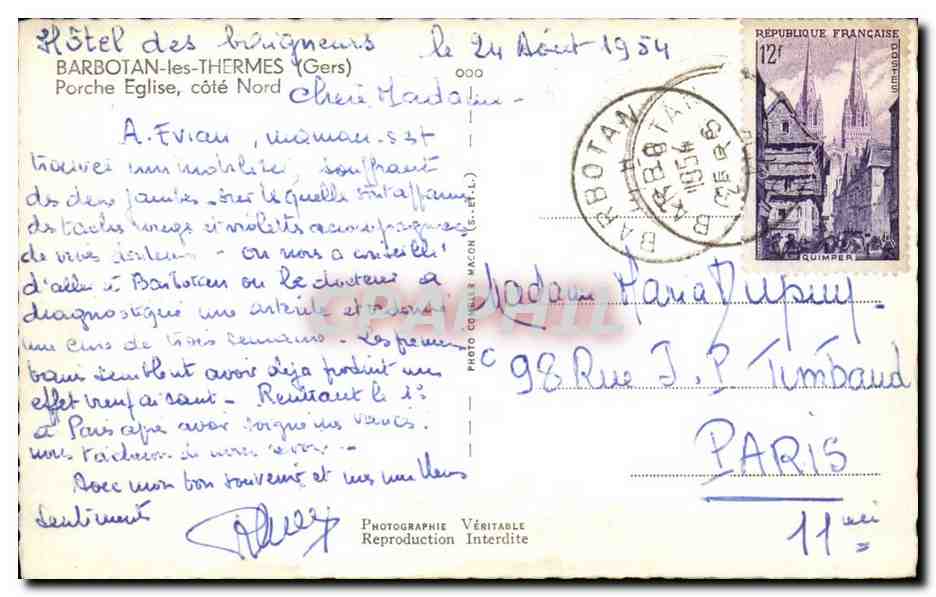 Hôtel des baigneurs le 24 Août 1954
BARBOTAN-les-THERMES (Gers)
Porche Eglise, côté Nord
Chère Madame -
A Evian, maman s'est
trouvée immobilisée, souffrant
des deux jambes - sur lesquelles
des taches rouges et violettes accompagnées
de vives douleurs - on nous a conseillé
d'aller à Barbotan où le docteur a
diagnostiqué une artérite et
une cure de trois semaines - Les premiers
bains semblent avoir déjà produit un
effet bienfaisant - Rentrant le 1°
à Paris après avoir
nous tâcherons de
Avec mon bon souvenir et mes meilleurs
sentiments
OOO
PHOTO COMBIER MACON (S.-ET-L.)
PHOTOGRAPHIE VÉRITABLE
Reproduction Interdite
RÉPUBLIQUE FRANÇAISE
12F
POSTES
QUIMPER
BARBOTAN
BARBOTAN
1954
GERS
CPAPHIL
Madame Maria Dupuy
98 Rue J. P Timbaud
PARIS
11